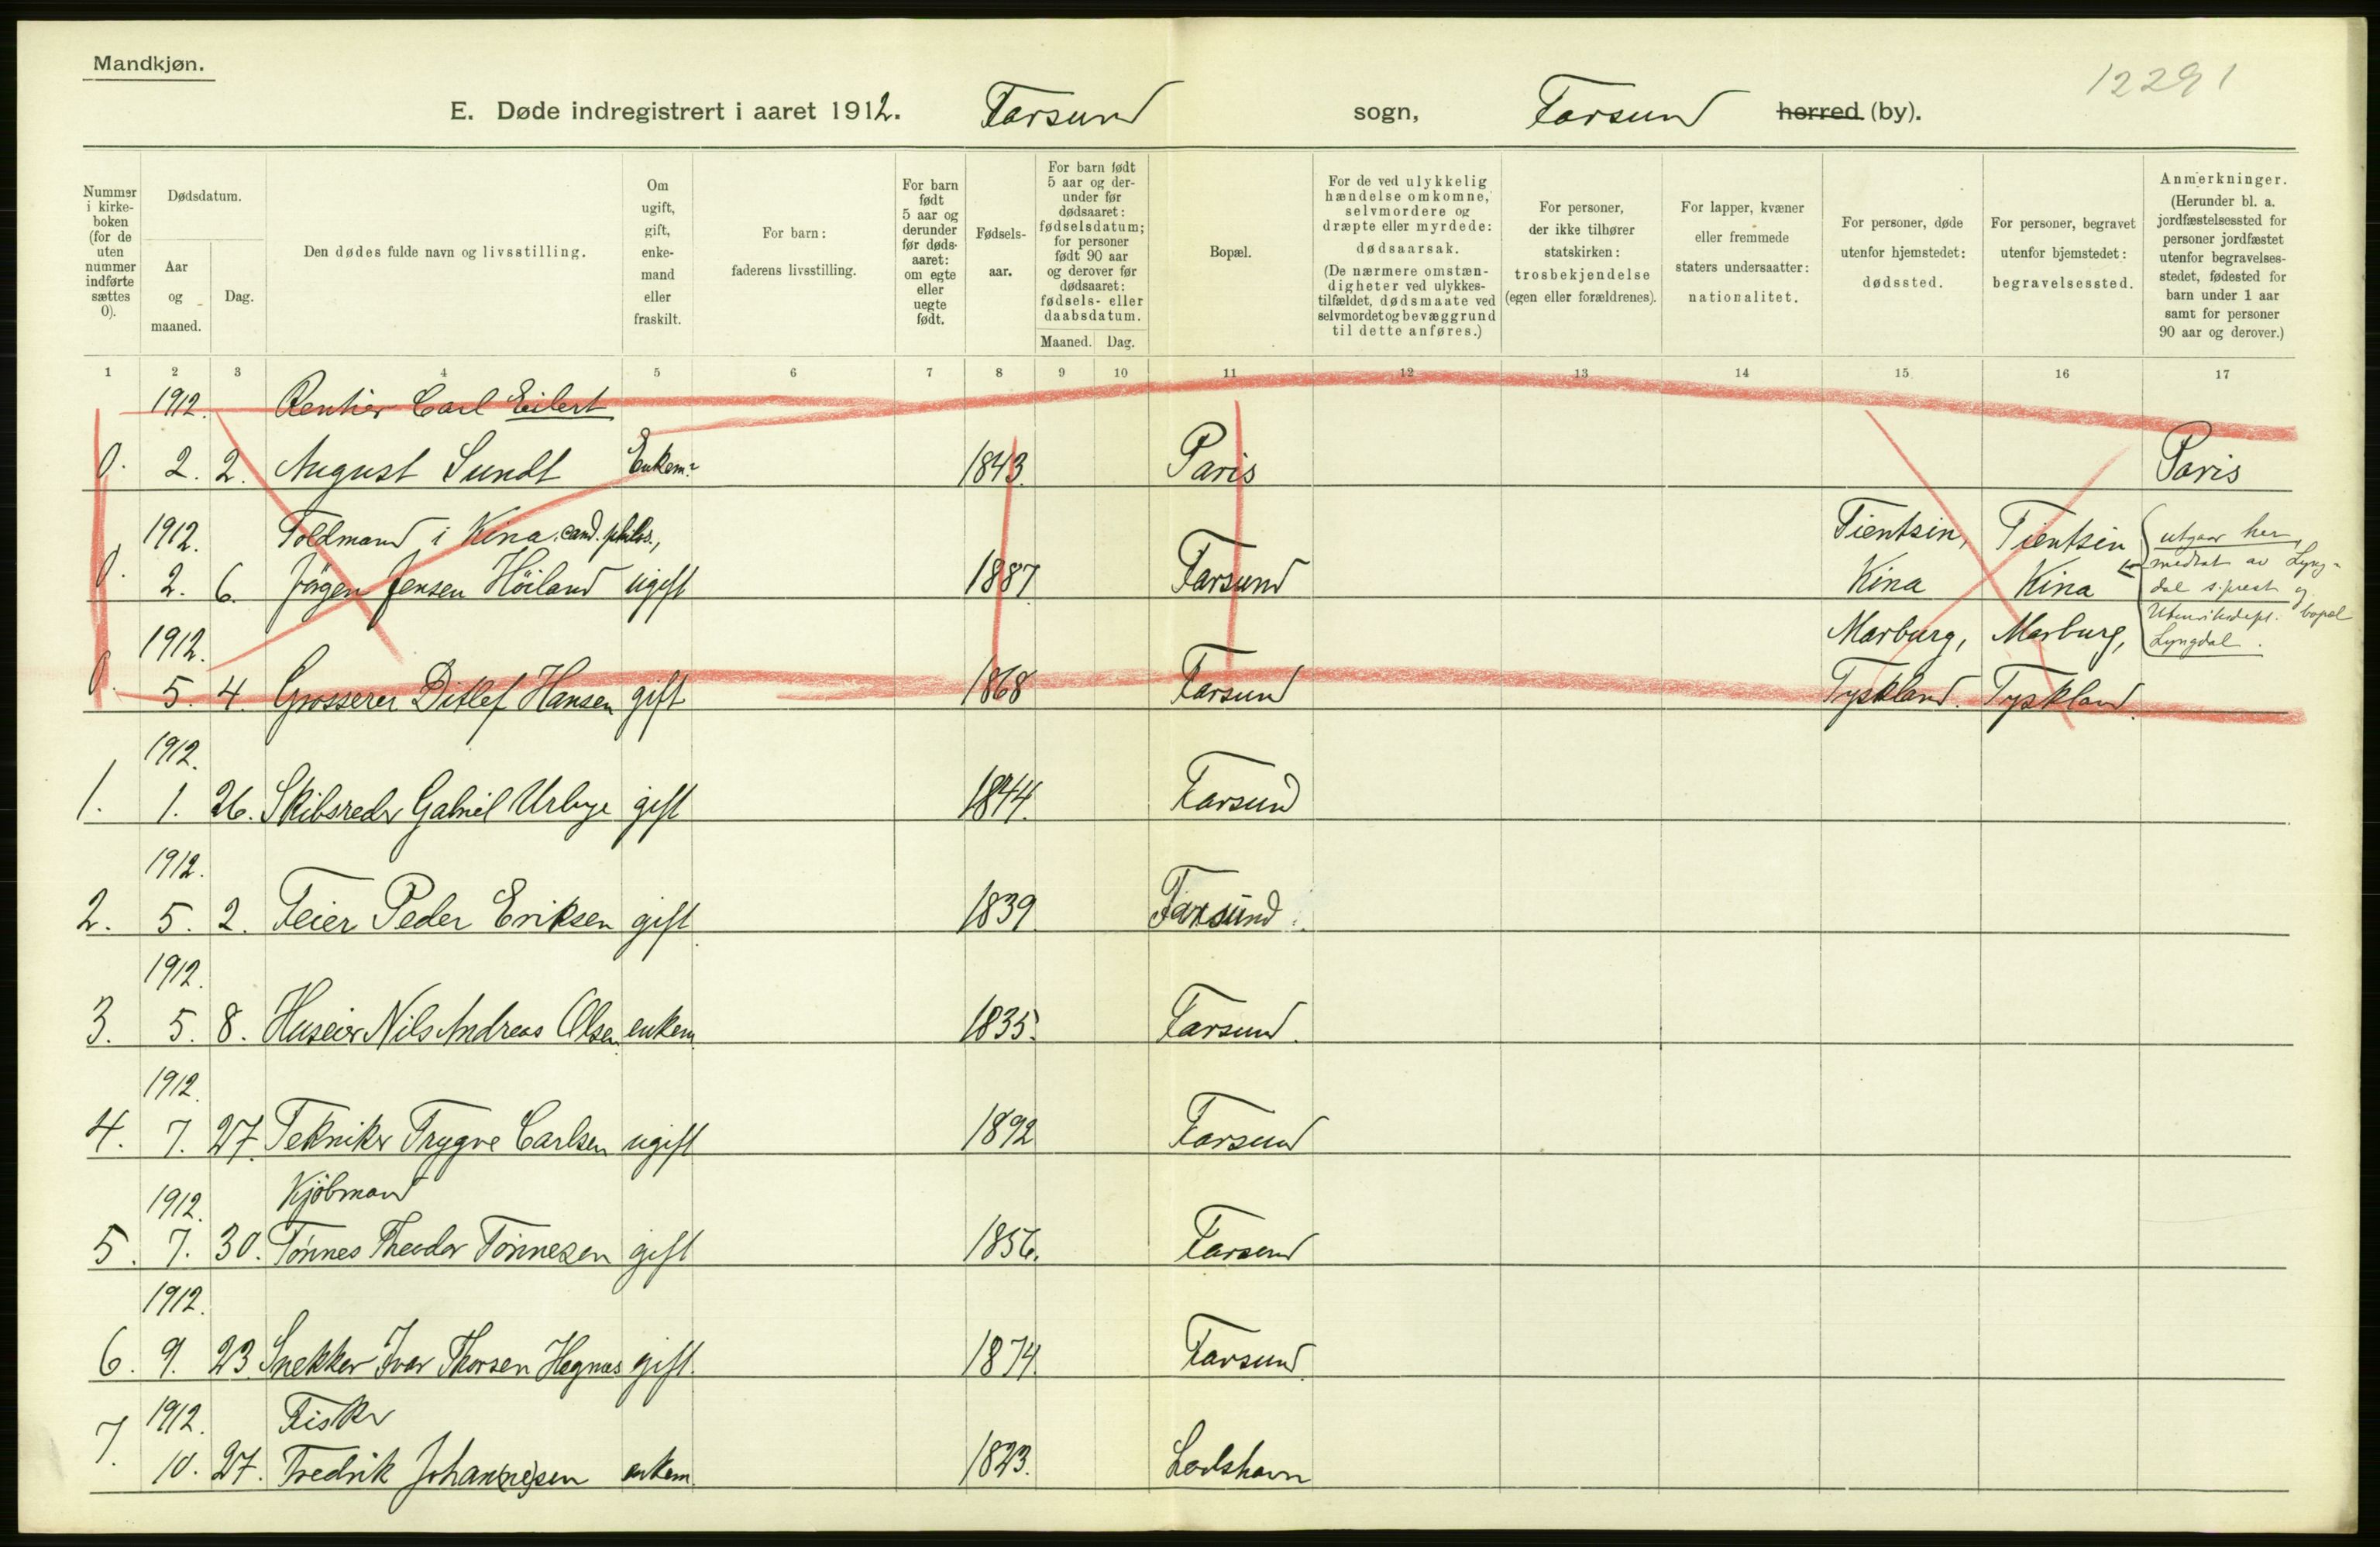 Mandkjøn.
12291
E. Døde indregistrert i aaret 1912. Farsund sogn, Farsund herred (by).
Nummer i kirkeboken (for de uten nummer indførte sættes 0).
Dødsdatum.
Aar og maaned.
Dag.
Den dødes fulde navn og livsstilling.
Om ugift, gift, enkemand eller fraskilt.
For barn: faderens livsstilling.
For barn født 5 aar og derunder før dødsaaret: om egte eller uegte født.
Fødselsaar.
For barn født 5 aar og derunder før dødsaaret: fødselsdatum; for personer født 90 aar og derover før dødsaaret: fødsels- eller daabsdatum.
Maaned. Dag.
Bopæl.
For de ved ulykkelig hændelse omkomne, selvmordere og dræpte eller myrdede: dødsaarsak. (De nærmere omstændigheter ved ulykkestilfældet, dødsmaate ved selvmordet og bevæggrund til dette anføres.)
For personer, der ikke tilhører statskirken: trosbekjendelse (egen eller forældrenes).
For lapper, kvæner eller fremmede staters undersaatter: nationalitet.
For personer, døde utenfor hjemstedet: dødssted.
For personer, begravet utenfor bjemstedet: begravelsessted.
Anmerkninger. (Herunder bl. a. jordfæstelsessted for personer jordfæstet utenfor begravelsesstedet, fødested for barn under 1 aar samt for personer 90 aar og derover.)
1 2 3 4 5 6 7 8 9 10 11 12 13 14 15 16 17
1912. Rentier Carl Eilert
0. 2. 2. August Sundt Enkem. 1843. Paris Paris
1912. Toldmand i Kina, cand. philos., Tientsin, Tientsin utgaar her,
0. 2. 6. Jörgen Jensen Höiland ugift 1887 Farsund Kina Kina medtat av Lyng-
dal s.prest og
1912. Marburg, Marburg, Utenriksdept. bopæl
Lyngdal.
0. 5. 4. Grosserer Ditlef Hansen gift 1868 Farsund Tyskland. Tyskland.
1912.
1. 1. 26. Skibsreder Gabriel Urbye gift 1844. Farsund
1912.
2. 5. 2. Feier Peder Eriksen gift 1839 Farsund.
1912.
3. 5. 8. Huseier Nils Andreas Olsen enkem. 1835. Farsund.
1912.
4. 7. 27. Tekniker Trygve Carlsen ugift 1892 Farsund
1912. Kjöbmand
5. 7. 30. Tönnes Theodor Tönnesen gift 1856. Farsund
1912.
6. 9. 23. Snekker Ivar Thorsen Hegnæs gift. 1874. Farsund.
1912. Fisker
7. 10. 27. Fredrik Johan(ne)sen enkem. 1823. Lodshavn